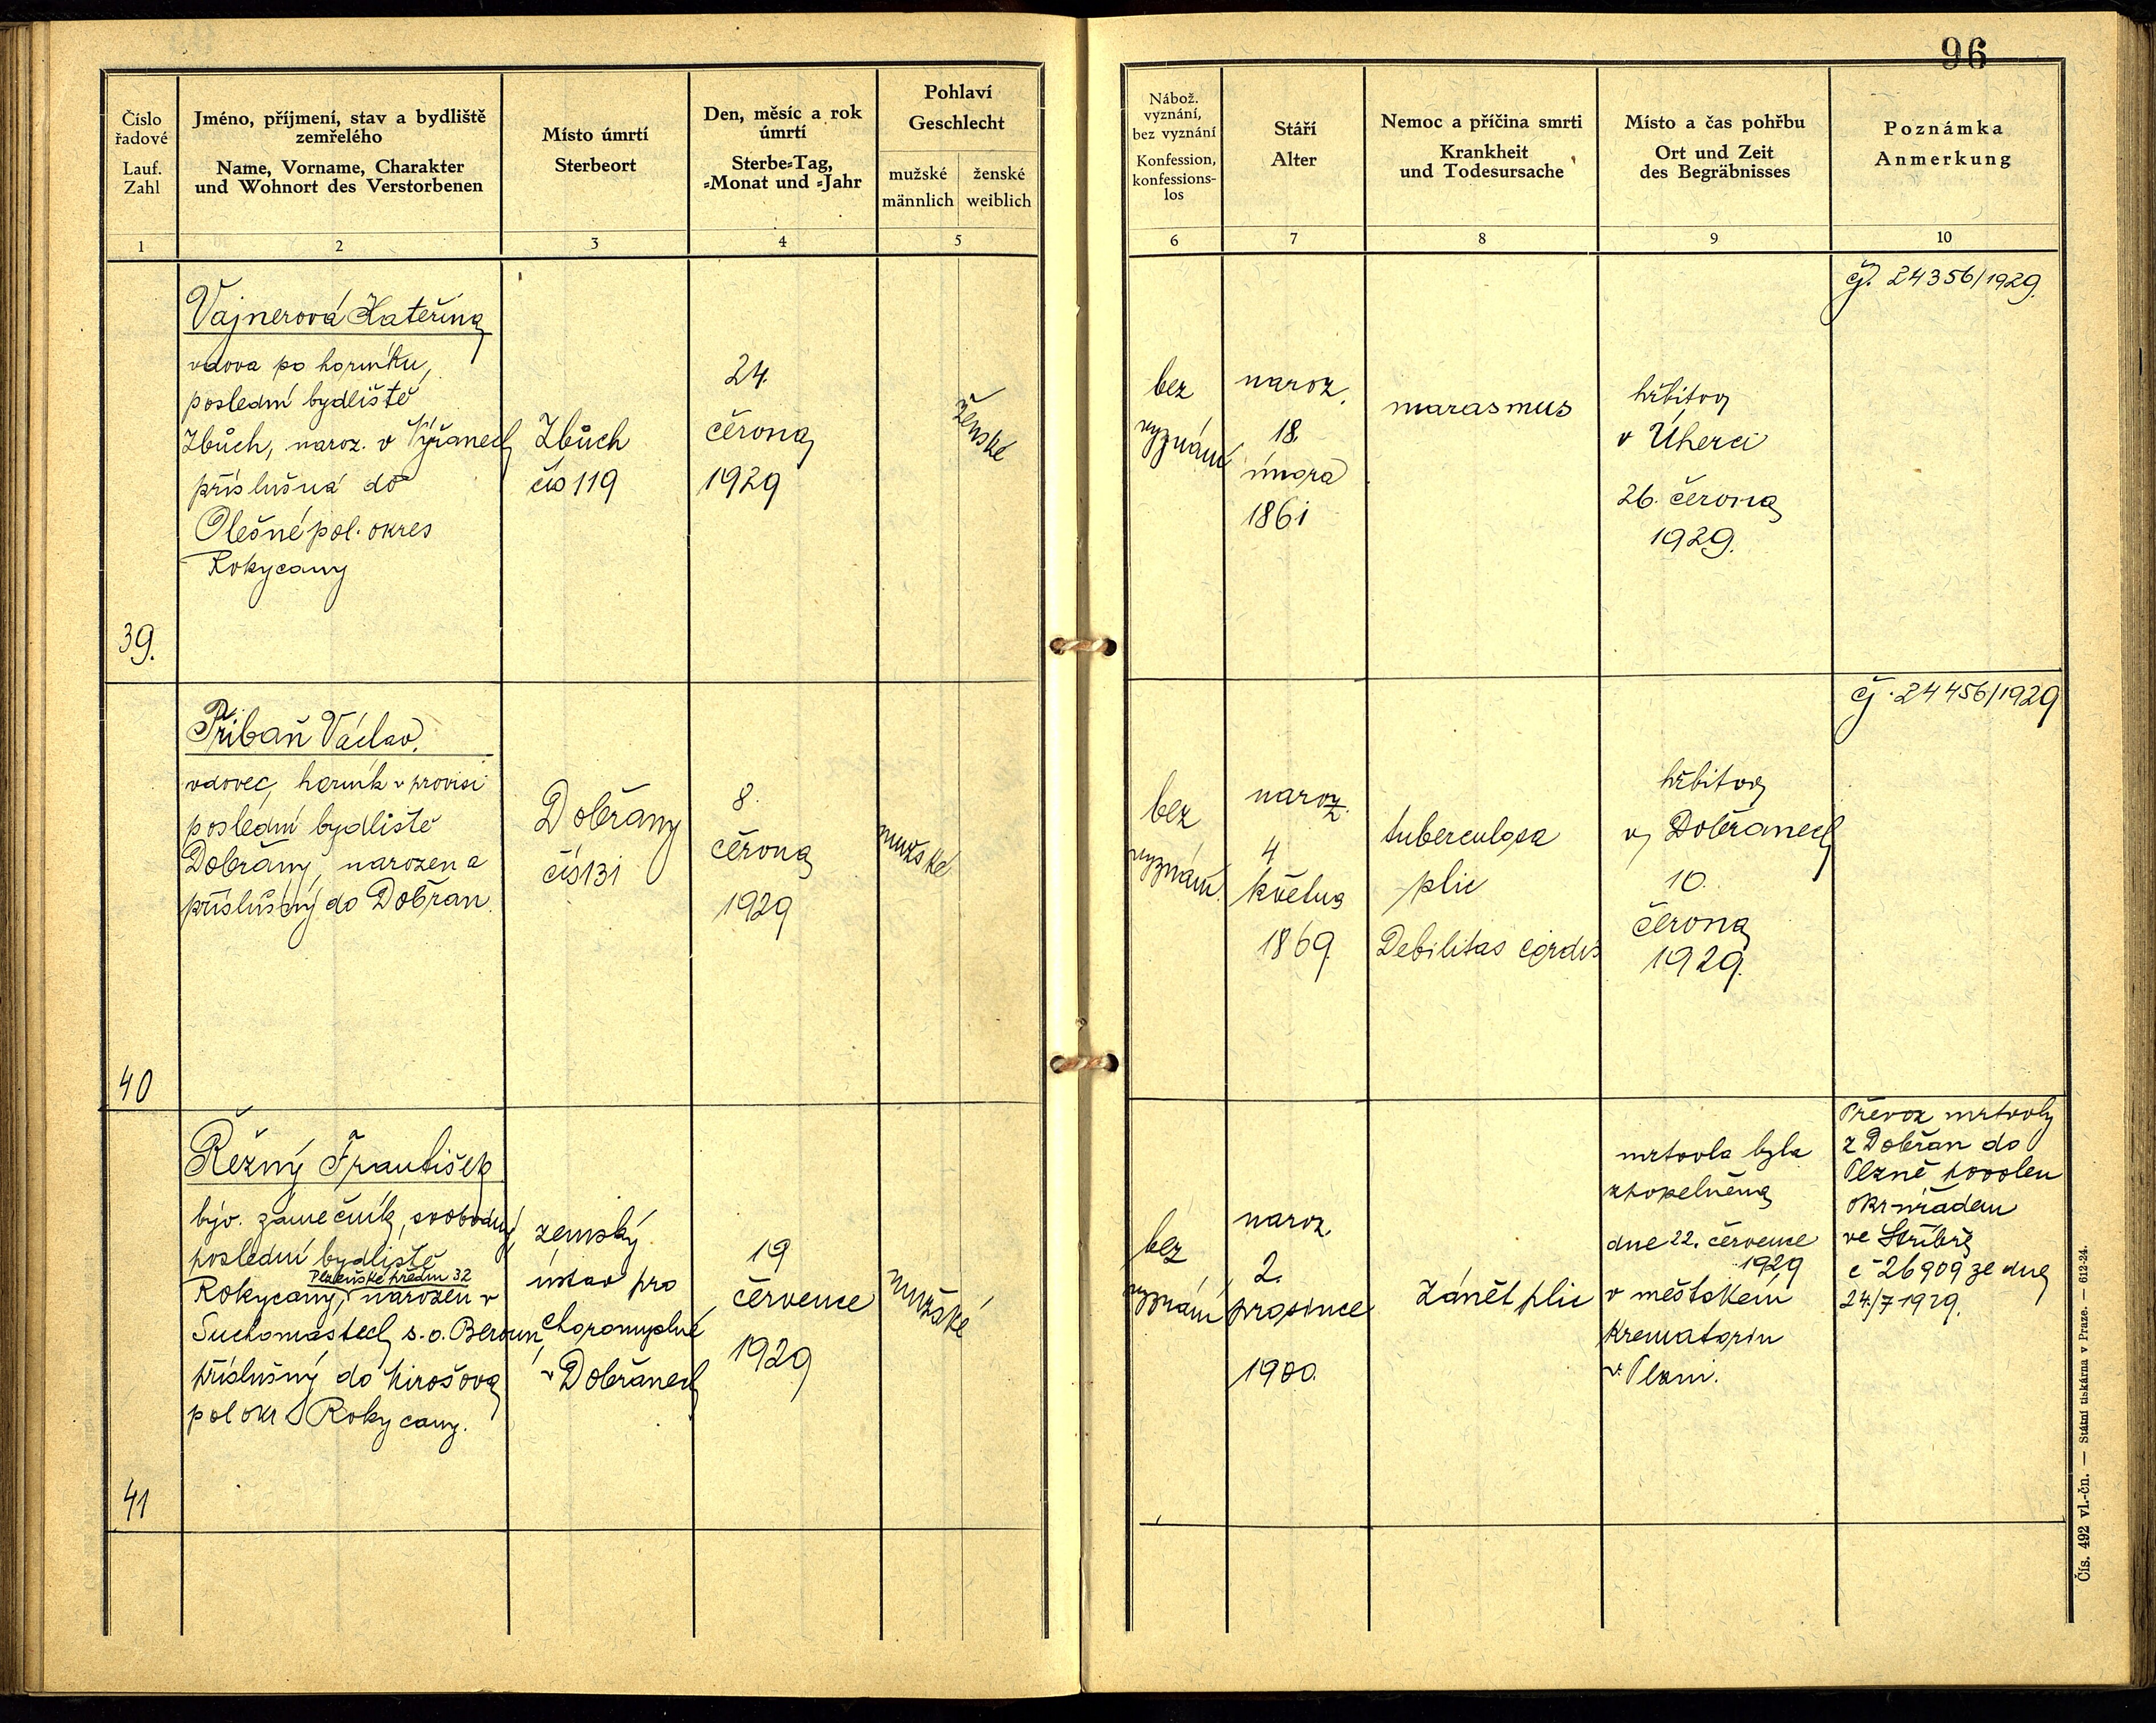 96
Číslo
řadové
Lauf.
Zahl
Jméno, příjmení, stav a bydliště
zemřelého
Name, Vorname, Charakter
und Wohnort des Verstorbenen
Místo úmrtí
Sterbeort
Den, měsíc a rok
úmrtí
Sterbe=Tag,
=Monat und =Jahr
Pohlaví
Geschlecht
mužské
männlich
ženské
weiblich
Nábož.
vyznání,
bez vyznání
Konfession,
konfessions-
los
Stáří
Alter
Nemoc a příčina smrti
Krankheit
und Todesursache
Místo a čas pohřbu
Ort und Zeit
des Begräbnisses
Poznámka
Anmerkung
1
2
3
4
5
6
7
8
9
10
39.
Vajnerová Kateřina
vdova po horníku,
poslední bydliště
Zbůch, naroz. v
příslušná do
Olešné pol. okres
Rokycany
Zbůch
čís 119
24.
června
1929
ženské
bez
vyznání
naroz.
18.
února
1861
marasmus
hřbitov
v Úherci
26. června
1929.
čj. 24356/1929.
40
Přibáň Václav.
vdovec, horník v provisi
poslední bydliště
Dobřany, narozen a
příslušný do Dobřan.
Dobřany
čís 131
8.
června
1929
mužské
bez
vyznání.
naroz.
4
května
1869.
tuberculosa
plic
Debilitas cordis
hřbitov
v Dobřanech
10.
června
1929.
čj. 24456/1929
41
Řežný František
býv. zámečník, svobodný,
poslední bydliště
Plzeňské předm 32
Rokycany, narozen v
Suchomastech s. o. Beroun,
příslušný do Mirošova
pol okr Rokycany.
zemský
ústav pro
choromyslné
v Dobřanech
19
července
1929
mužské
bez
vyznání
naroz.
2.
prosince
1900.
Zánět plic
mrtvola byla
zpopelněna
dne 22. července
1929
v městském
Krematoriu
v Plzni.
Převoz mrtvoly
z Dobřan do
Plzně povolen
okr úřadem
ve Stříbře
č 26909 ze dne
24./7 1929.
Čís. 492 vl.-čn. — Státní tiskárna v Praze. — 612-24.